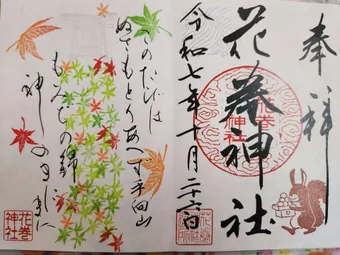 奉拝
花巻神社
花巻神社
令和七年十月二十六日
このたびは
ぬさもとりあへず手向山
もみぢの錦
神のまにまに
花巻神社